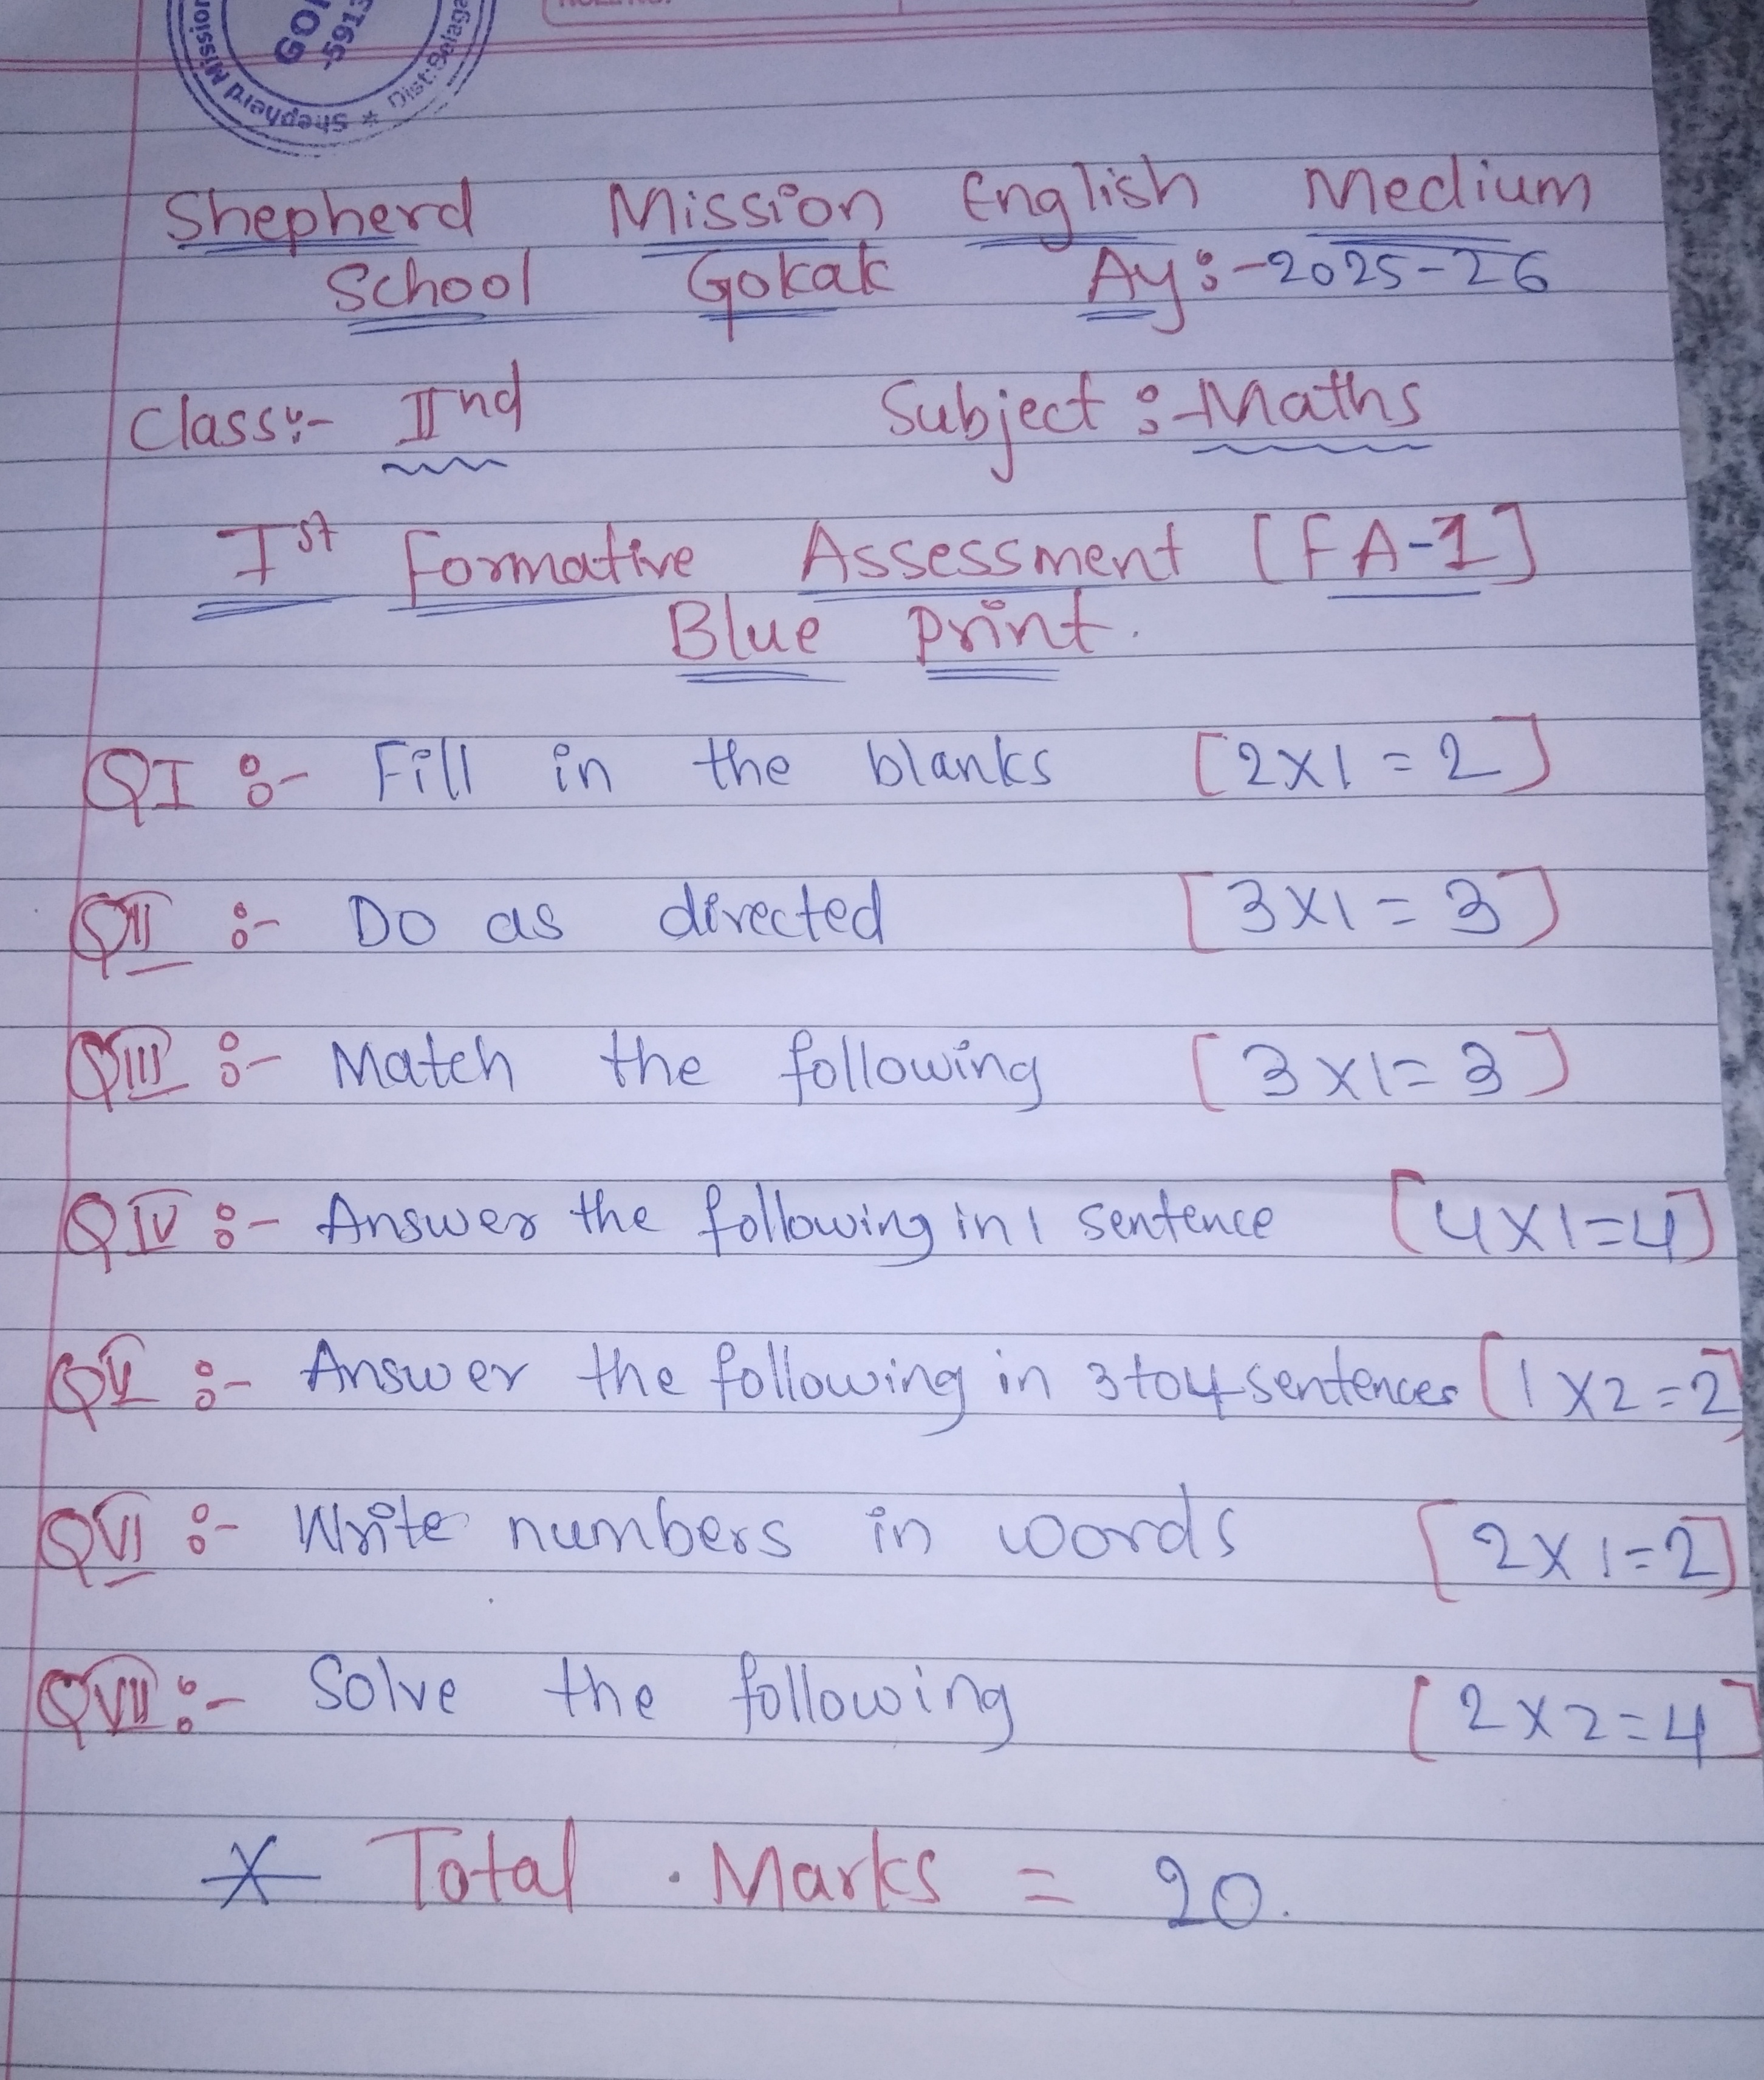 Shepherd Mission
GOK
-5913
Dist:Belaga
Shepherd Mission English Medium
School Gokak Ay:-2025-26
Class:- IInd Subject:-Maths
Ist Formative Assessment [FA-1]
Blue print.
QI :- Fill in the blanks [2x1=2]
QII :- Do as directed [3x1=3]
QIII :- Match the following [3x1=3]
QIV :- Answer the following in 1 sentence [4x1=4]
QV :- Answer the following in 3to4 sentences [1x2=2]
QVI :- Write numbers in words [2x1=2]
QVII :- Solve the following [2x2=4]
* Total . Marks = 20.